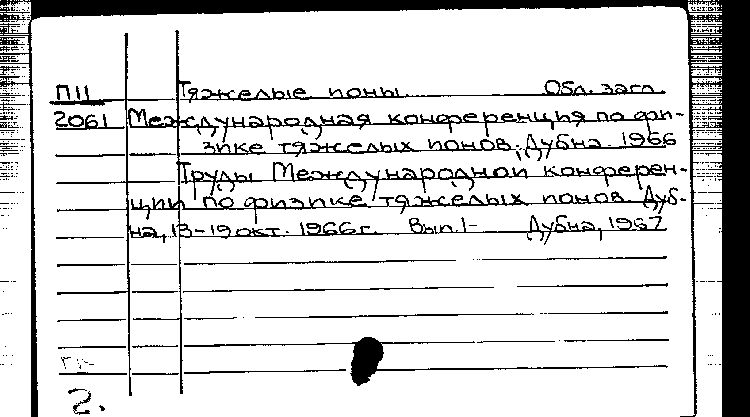 П11 Тяжелые ионы. Обл. загл.
2061 Международная конференция по фи-
зике тяжелых ионов, Дубна. 1966
Труды Международной конферен-
ции по физике тяжелых ионов. Дуб-
на, 13-19 окт. 1966г. Вып.1- Дубна, 1967
2.